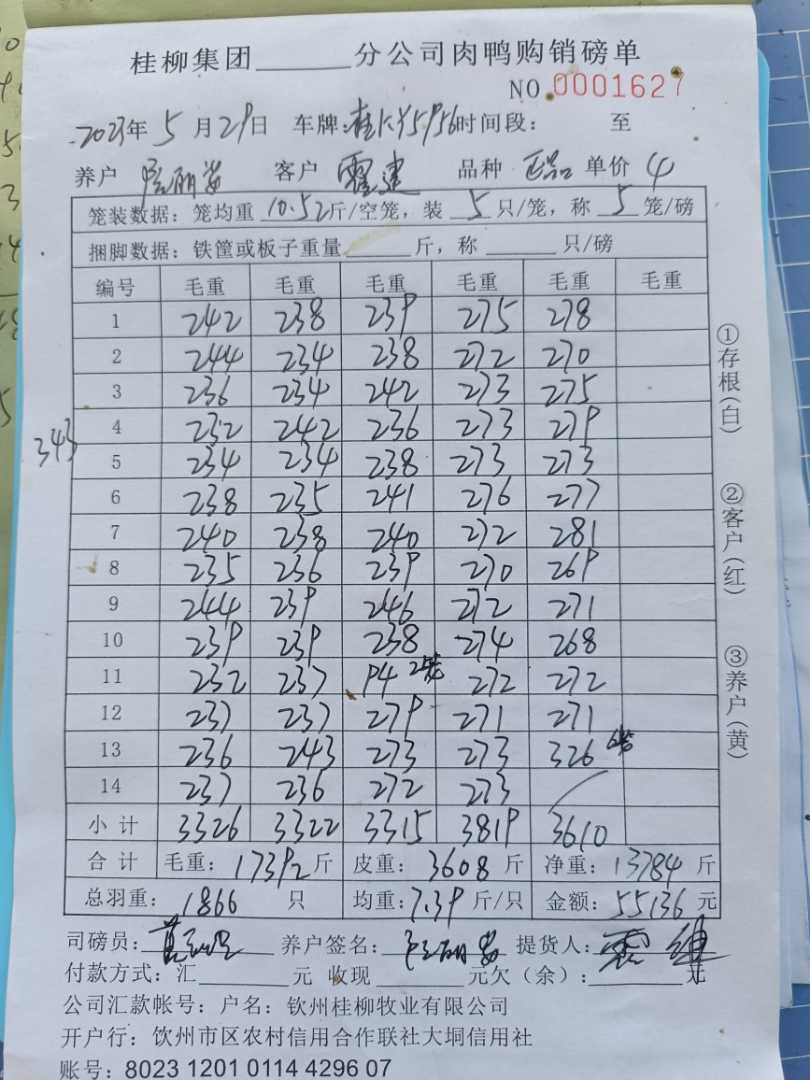 桂柳集团______分公司肉鸭购销磅单
NO 0001627
2023年5月29日 车牌: 时间段: 至
养户 客户 品种 正品 单价 4
笼装数据：笼均重 10.52 斤/空笼，装 5 只/笼，称 5 笼/磅
捆脚数据：铁筐或板子重量______斤，称______只/磅
编号 毛重 毛重 毛重 毛重 毛重 毛重
1 242 238 239 275 278
2 244 234 238 272 270
3 236 234 242 273 275
4 232 242 236 273 279
343
5 234 234 238 273 273
6 238 235 241 276 277
7 240 238 240 272 281
8 235 236 239 270 269
9 244 239 246 272 271
10 239 239 238 274 268
11 232 237 94 2笼 272 272
12 237 237 279 271 271
13 236 243 273 273 326 6笼
14 237 236 272 273
小计 3326 3322 3315 3819 3610
合计 毛重：17392斤 皮重：3608斤 净重：13784斤
总羽重：1866 只 均重：7.39斤/只 金额：55136元
司磅员： 养户签名： 提货人：
付款方式：汇______元 收现______元欠（余）：______元
公司汇款帐号：户名：钦州桂柳牧业有限公司
开户行：钦州市区农村信用合作联社大垌信用社
账号：8023 1201 0114 4296 07
①存根(白)
②客户(红)
③养户(黄)